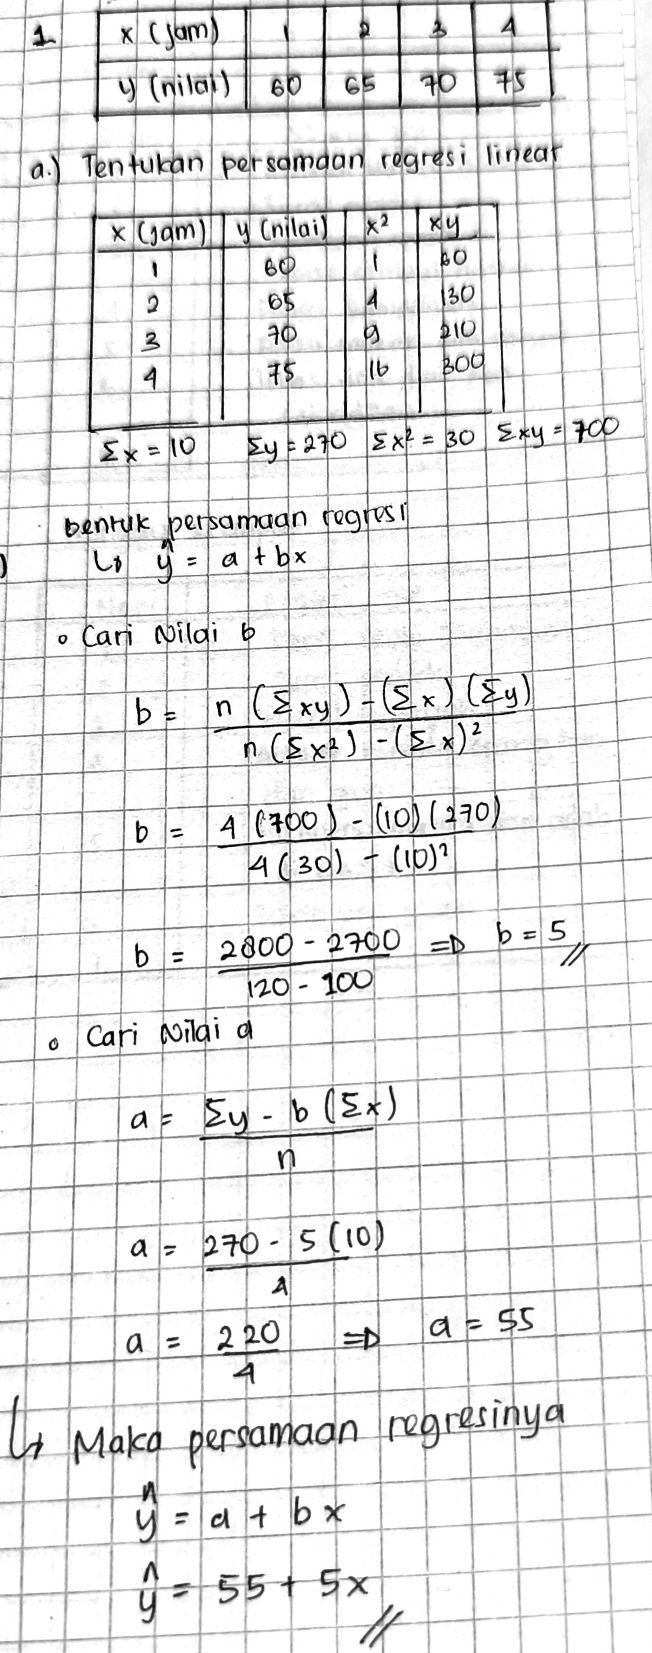 1. x (jam) 1 2 3 4
y (nilai) 60 65 70 75
a.) Tentukan persamaan regresi linear
x (jam) y (nilai) x² xy
1 60 1 60
2 65 4 130
3 70 9 210
4 75 16 300
Σx = 10 Σy = 270 Σx² = 30 Σxy = 700
bentuk persamaan regresi
↳ ŷ = a + bx
∘ Cari Nilai b
b = n (Σxy) - (Σx) (Σy)
n (Σx²) - (Σx)²
b = 4 (700) - (10) (270)
4 (30) - (10)²
b = 2800 - 2700 ⇒ b = 5 //
120 - 100
∘ Cari Nilai a
a = Σy - b (Σx)
n
a = 270 - 5 (10)
4
a = 220 ⇒ a = 55
4
↳ Maka persamaan regresinya
ŷ = a + bx
ŷ = 55 + 5x //